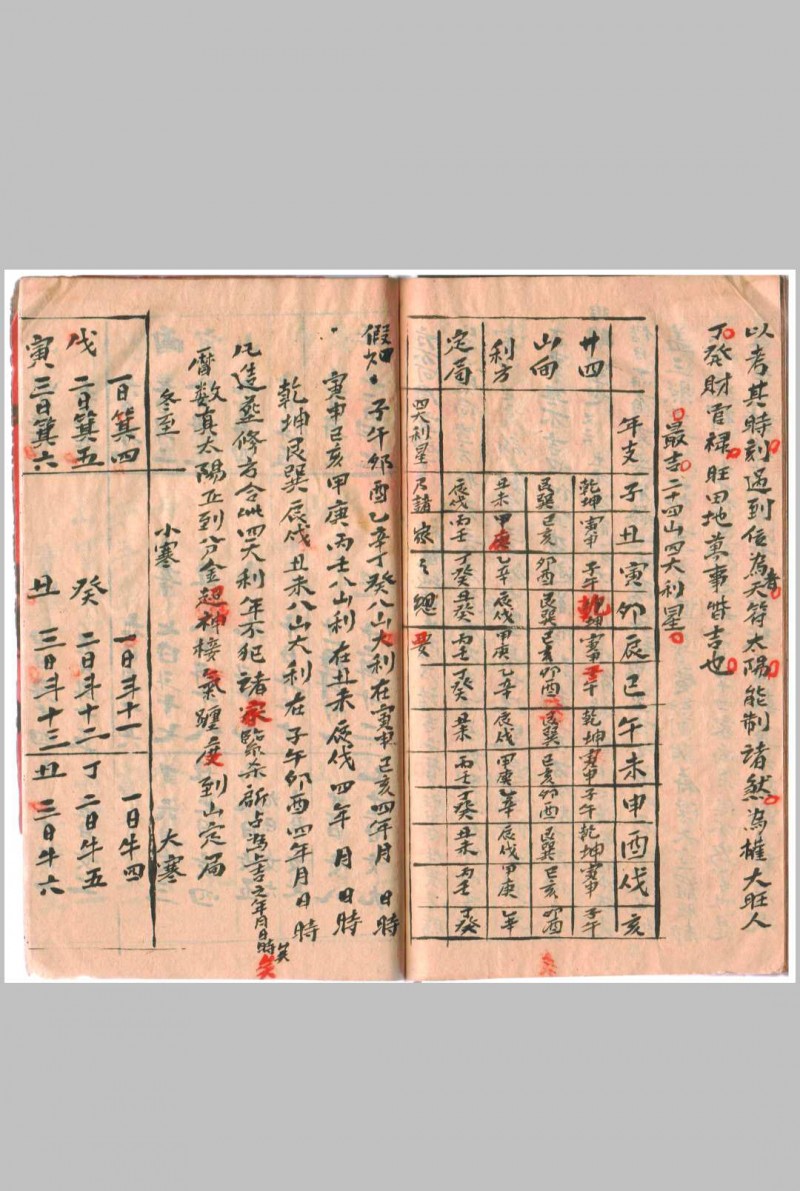 以考其時刻遇到位者為天符太陽能制諸煞為權大旺人
丁發財官祿旺田地萬事皆吉也
最吉二十四山四大利星
年支 子 丑 寅 卯 辰 巳 午 未 申 酉 戌 亥
廿四 乾坤 寅申 子午 乾坤 寅申 子午 乾坤 寅申 子午 乾坤 寅申 子午
山向 艮巽 巳亥 卯酉 艮巽 巳亥 卯酉 艮巽 巳亥 卯酉 艮巽 巳亥 卯酉
利方 丑未 甲庚 乙辛 辰戌 甲庚 乙辛 辰戌 甲庚 乙辛 辰戌 甲庚 乙辛
定局 辰戌 丙壬 丁癸 丑癸 丙壬 丁癸 丑未 丙壬 丁癸 丑未 丙壬 丁癸
四大利星 乃諸家之總要
假如 子午卯酉乙辛丁癸八山大利在寅申巳亥四年月日時
寅申巳亥甲庚丙壬八山利在丑未辰戌四年月日時
乾坤艮巽辰戌丑未八山大利在子午卯酉四年月日時
凡造葬修方合此四大利年不犯諸家緊杀所占為上吉之年月日時矣
曆數真太陽正到分金超神接氣躔度到山定局
冬至 小寒 大寒
一日箕四 一日斗十一 一日牛四
戌 二日箕五 癸 二日斗十二 丁 二日牛五
寅 三日箕六 丑 三日斗十三 丑 三日牛六